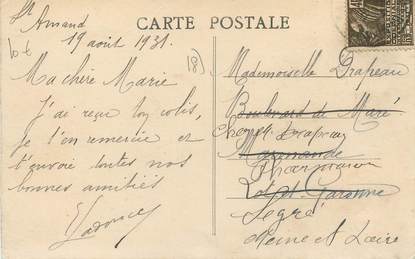 St Amand
CARTE POSTALE
19 août 1931.
Ma chère Marie
J'ai reçu ton colis,
je t'en remercie et
t'envoie toutes nos
bonnes amitiés
Mademoiselle Drapeau
Boulevard de Maré
Drapeau
Marmande
Lot-et-Garonne
Segré
Maine et Loire